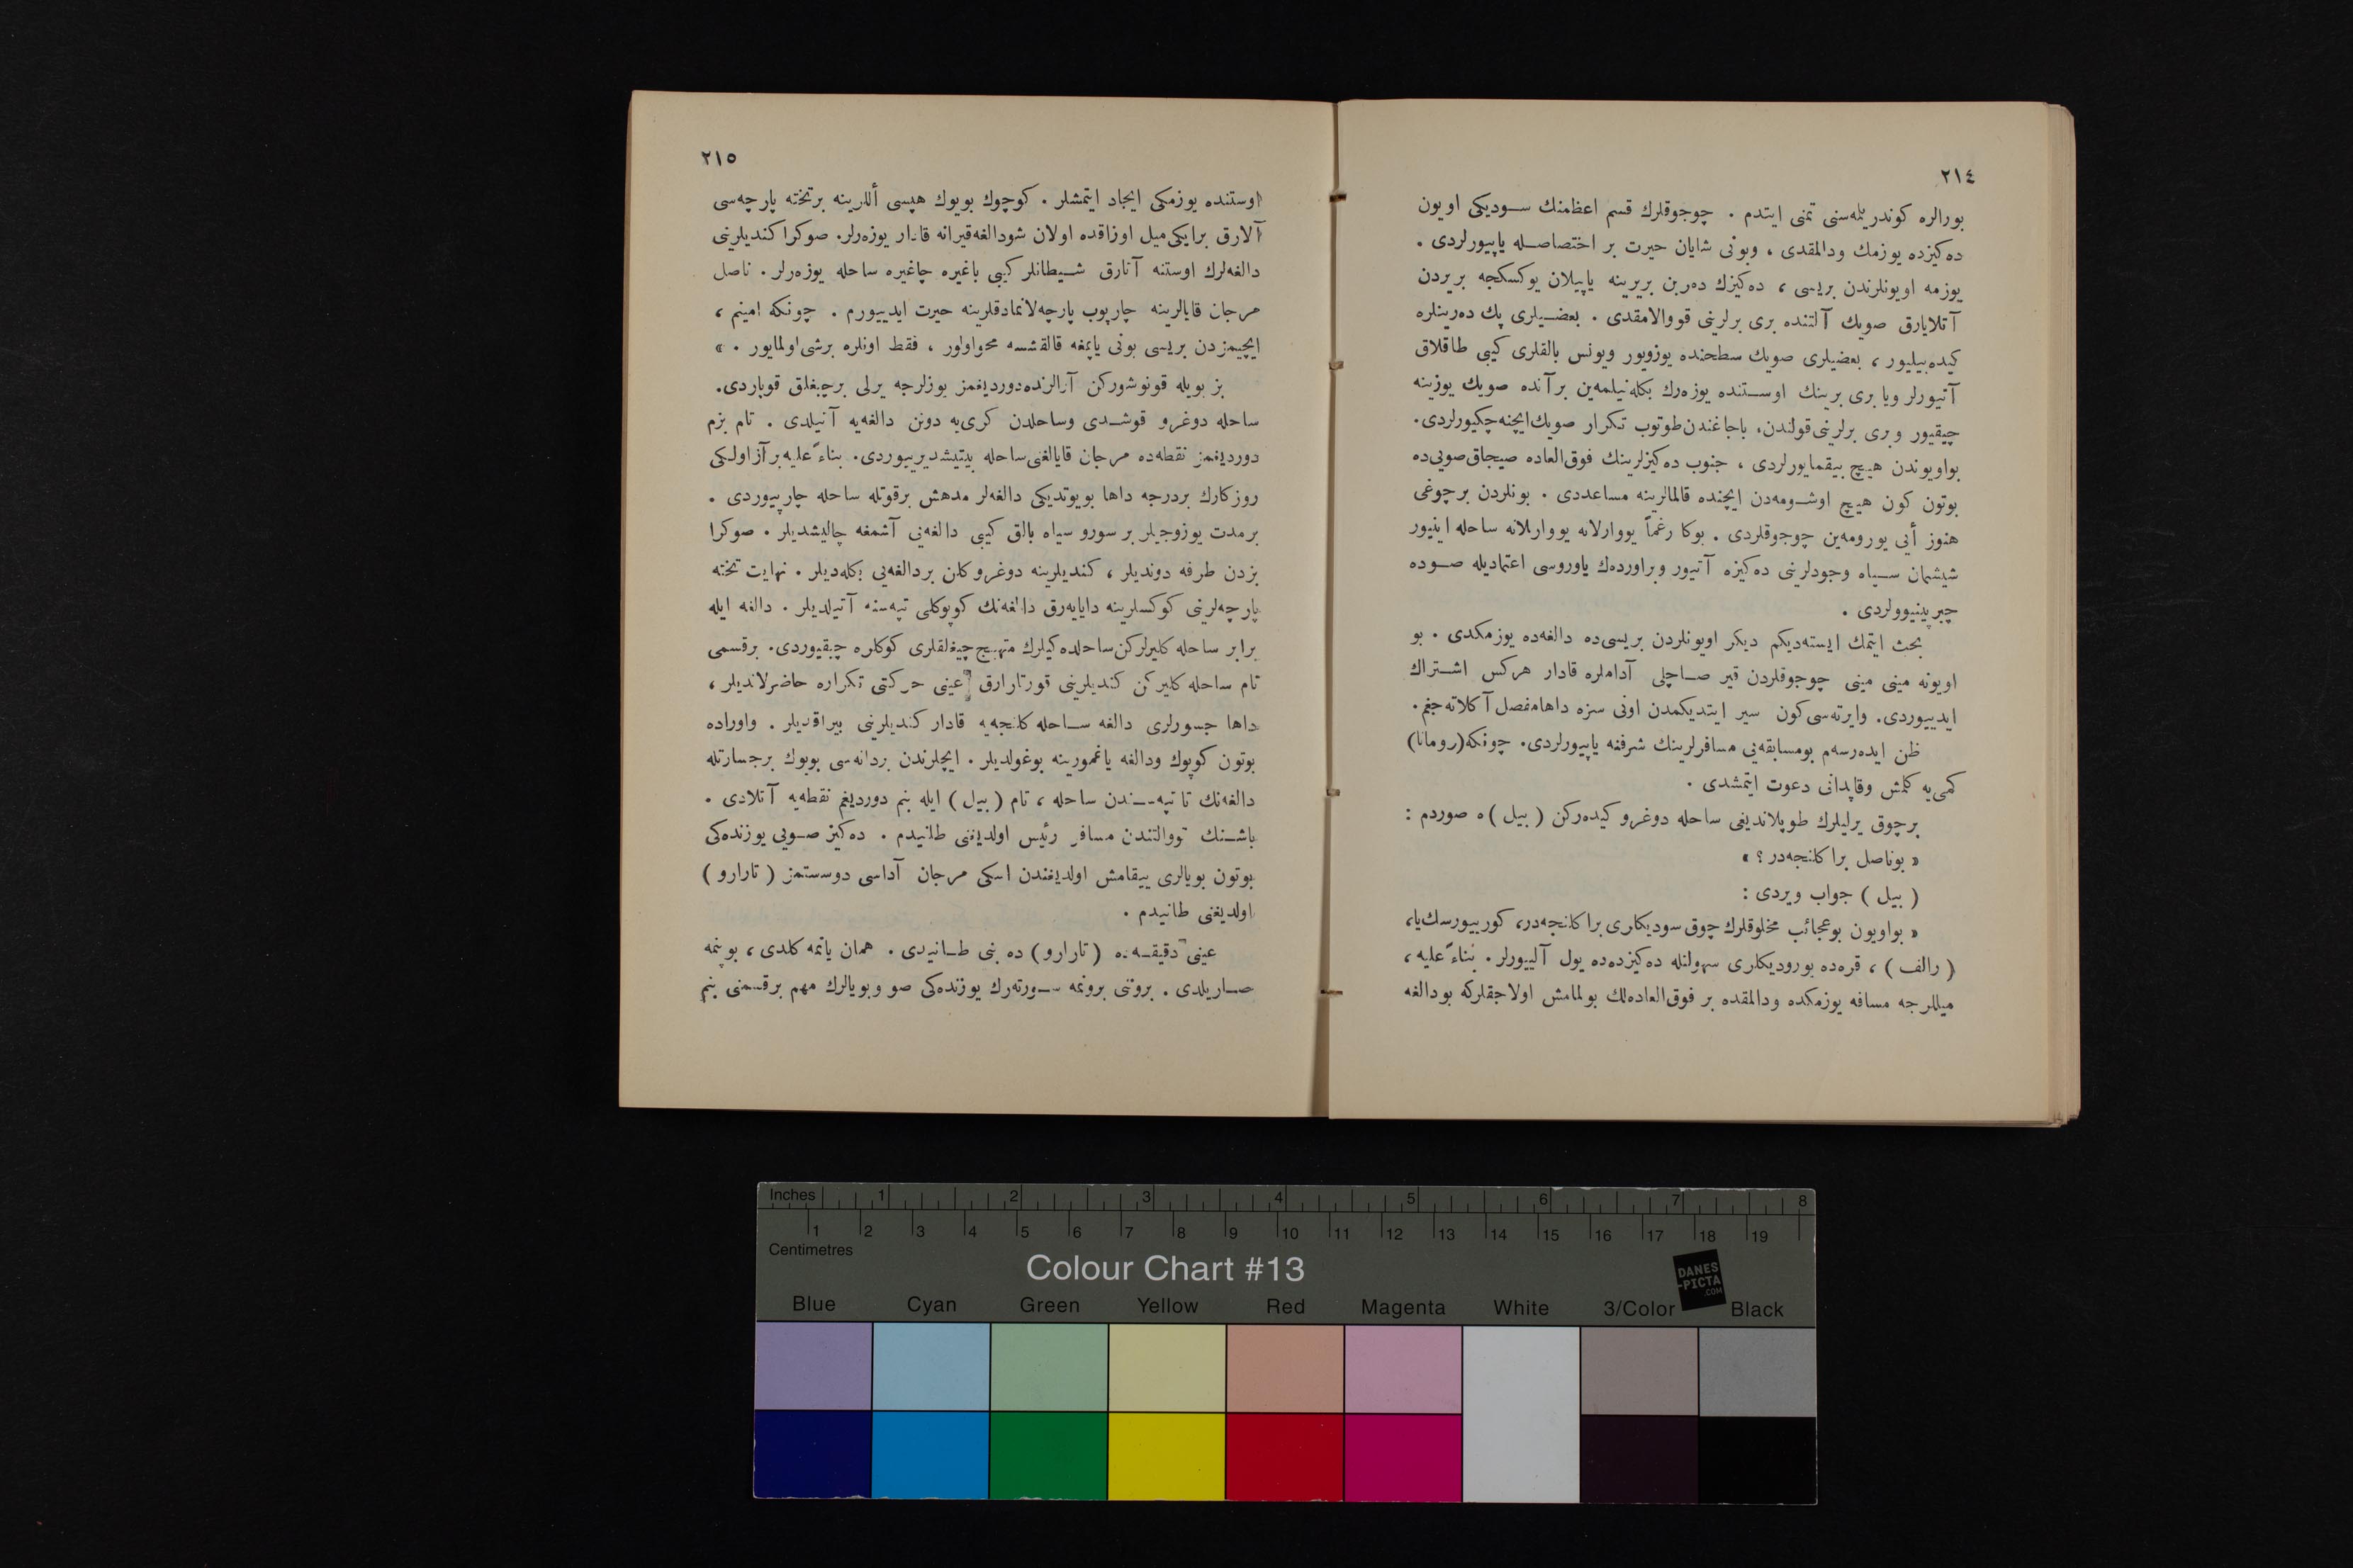 ٢١٤
بورالره كوندريله‌سنى تمنى ايتدم . چوجوقلرك قسم اعظمنك سـوديكى اويون
ده‌كيزده يوزمك ودالمقدى ، وبونى شايان حيرت بر اختصاصـله ياپيورلردى .
يوزمه اويونلرندن بريسى ، ده‌كيزك ده‌رين بريرينه ياپيلان يوكسكجه بريردن
آتلايارق صويك آلتنده برى برلرينى قووالامقدى . بعضـيلرى پك ده‌رينلره
كيده‌بيليور ، بعضيلرى صويك سطحنده يوزويور ويونس بالقلرى كيبى طاقلاق
آتيورلر ويا برى برينك اوسـتنده يوزه‌رك بكله‌نيلمه‌ين برآنده صويك يوزينه
چيقيور وبرى برلرينى قولندن، باجاغندن طوتوب تكرار صويك ايچنه چكيورلردى.
بواويوندن هيـچ بيقمايورلردى ، جنوب ده‌كيزلرينك فوق‌العاده صيجاق صويى‌ده
بوتون كون هيـچ اوشـومه‌دن ايچنده قالمالرينه مساعددى . بونلردن برچوغى
هنوز أيى يورومه‌ين چوجوقلردى . بوكا رغماً يووارلانه يووارلانه ساحله اينيور
شيشمان سـياه وجودلرينى ده‌كيزه آتيور وبراورده‌ك ياوروسى اعتماديله صـوده
چيرپينيوولردى .
بحث ايتمك ايسته‌ديكم ديكر اويونلردن بريسى‌ده دالغه‌ده يوزمكدى . بو
اويونه مينى مينى چوجوقلردن قير صـاچلى آداملره قادار هركس اشـتراك
ايدييوردى. وايرته‌سى كون سير ايتديكمدن اونى سزه داها مفصل آكلاته‌جغم.
ظن ايده‌رسه‌م بومسابقه‌يى مسافرلرينك شرفنه ياپيورلردى. چونكه (روماتا)
كمى‌يه كلمش وقاپدانى دعوت ايتمشدى .
برچوق يرليلرك طوپلانديغى ساحله دوغرو كيده‌ركن ( بيل ) ه صوردم :
« بوناصل براكلنجه‌در ؟ »
( بيل ) جواب ويردى :
« بواويون بوعجائب مخلوقلرك چوق سوديكلرى براكلنجه‌در، كورييورسك‌يا،
( رالف ) ، قره‌ده يوروديكلرى سهولتله ده‌كيزده‌ده يول آلييورلر . بناءً عليه ،
ميللرجه مسافه يوزمكده ودالمقده بر فوق‌العاده‌لك بولمامش اولاجقلركه بودالغه
٢١٥
اوستنده يوزمكى ايجاد ايتمشلر . كوچوك بويوك هپسى أللرينه برتخته پارچه‌سى
آلارق برايكى ميل اوزاقده اولان شودالغه‌قيرانه قادار يوزه‌رلر. صوكرا كنديلرينى
دالغه‌لرك اوستنه آتارق شـيطانلر كيبى باغيره چاغيره ساحله يوزه‌رلر . ناصل
مرجان قايالرينه چارپوب پارچه‌لانمادقلرينه حيرت ايدييورم . چونكه امينم ،
ايچيمزدن بريسى بونى ياپمغه قالقشسه محواولور ، فقط اونلره برشى‌اولمايور . »
بز بويله قونوشوركن آرالرنده دورديغمز يوزلرجه يرلى برچيغلق قوپاردى.
ساحله دوغرو قوشـدى وساحلدن كرى‌يه دونن دالغه‌يه آتيلدى . تام بزم
دورديغمز نقطه‌ده مرجان قايالغى ساحله بيتيشديرييوردى. بناءً عليه برآز اولكى
روزكارك بردرجه داها بويوتديكى دالغه‌لر مدهش برقوتله ساحله چارپييوردى .
برمدت يوزوجيلر بر سورو سياه بالق كيبى دالغه‌يى آشمغه چاليشديلر . صوكرا
بزدن طرفه دونديلر ، كنديلرينه دوغروكلن بردالغه‌يى بكله‌ديلر . نهايت تخته
پارچه‌لرينى كوكسلرينه داياييه‌رق دالغه‌نك كوپوكلى تپه‌سنه آتيلديلر . دالغه ايله
برابر ساحله كليرلركن ساحلده‌كيلرك متهيج چيغلقلرى كوكلره چيقيوردى. برقسمى
تام ساحله كليركن كنديلرينى قورتارارق عينى حركتى تكراره حاضرلانديلر ،
داها جسورلرى دالغه سـاحله كلنجه‌يه قادار كنديلرينى بيراقديلر . واوراده
بوتون كوپوك ودالغه ياغمورينه بوغولديلر . ايچلرندن بردانه‌سى بويوك برجسارتله
دالغه‌نك تا تپه‌سـندن ساحله ، تام ( بيل ) ايله بنم دورديغم نقطه‌يه آتلادى .
باشـنك تووالتندن مسافر رئيس اولديغنى طانيدم . ده‌كيز صـويى يوزنده‌كى
بوتون بويالرى ييقامش اولديغندن اسكى مرجان آداسى دوستمز ( تارارو )
اولديغنى طانيدم .
عينى دقيقـه‌ده ( تارارو ) ده بنى طـانيدى . همان يانمه كلدى ، بوينمه
صـاريلدى . برونى برونمه سـورته‌رك يوزنده‌كى صو وبويالرك مهم برقسمنى بنم
Inches 1 2 3 4 5 6 7 8
1 2 3 4 5 6 7 8 9 10 11 12 13 14 15 16 17 18 19
Centimetres
Colour Chart #13
DANES
-PICTA
.COM
Blue Cyan Green Yellow Red Magenta White 3/Color Black